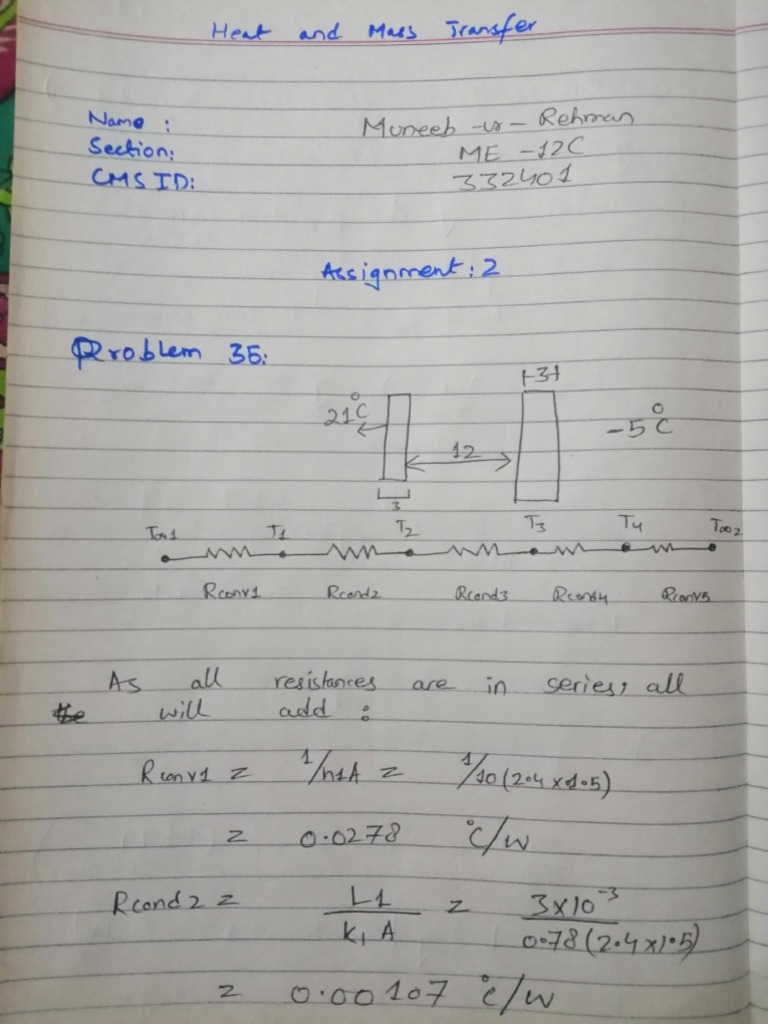 Heat and Mass Transfer
Name : Muneeb -ur- Rehman
Section: ME -12C
CMS ID: 332401
Assignment: 2
Problem 35:
3
21°C
-5°C
12
3
T∞1 T1 T2 T3 T4 T∞2
Rconv1 Rcond2 Rcond3 Rcond4 Rconv5
As all resistances are in series, all
will add :
Rconv1 = 1/h1A = 1/10(2.4 x 1.5)
= 0.0278 °C/W
Rcond2 = L1/K1 A = 3x10⁻³/0.78(2.4x1.5)
= 0.00107 °C/W